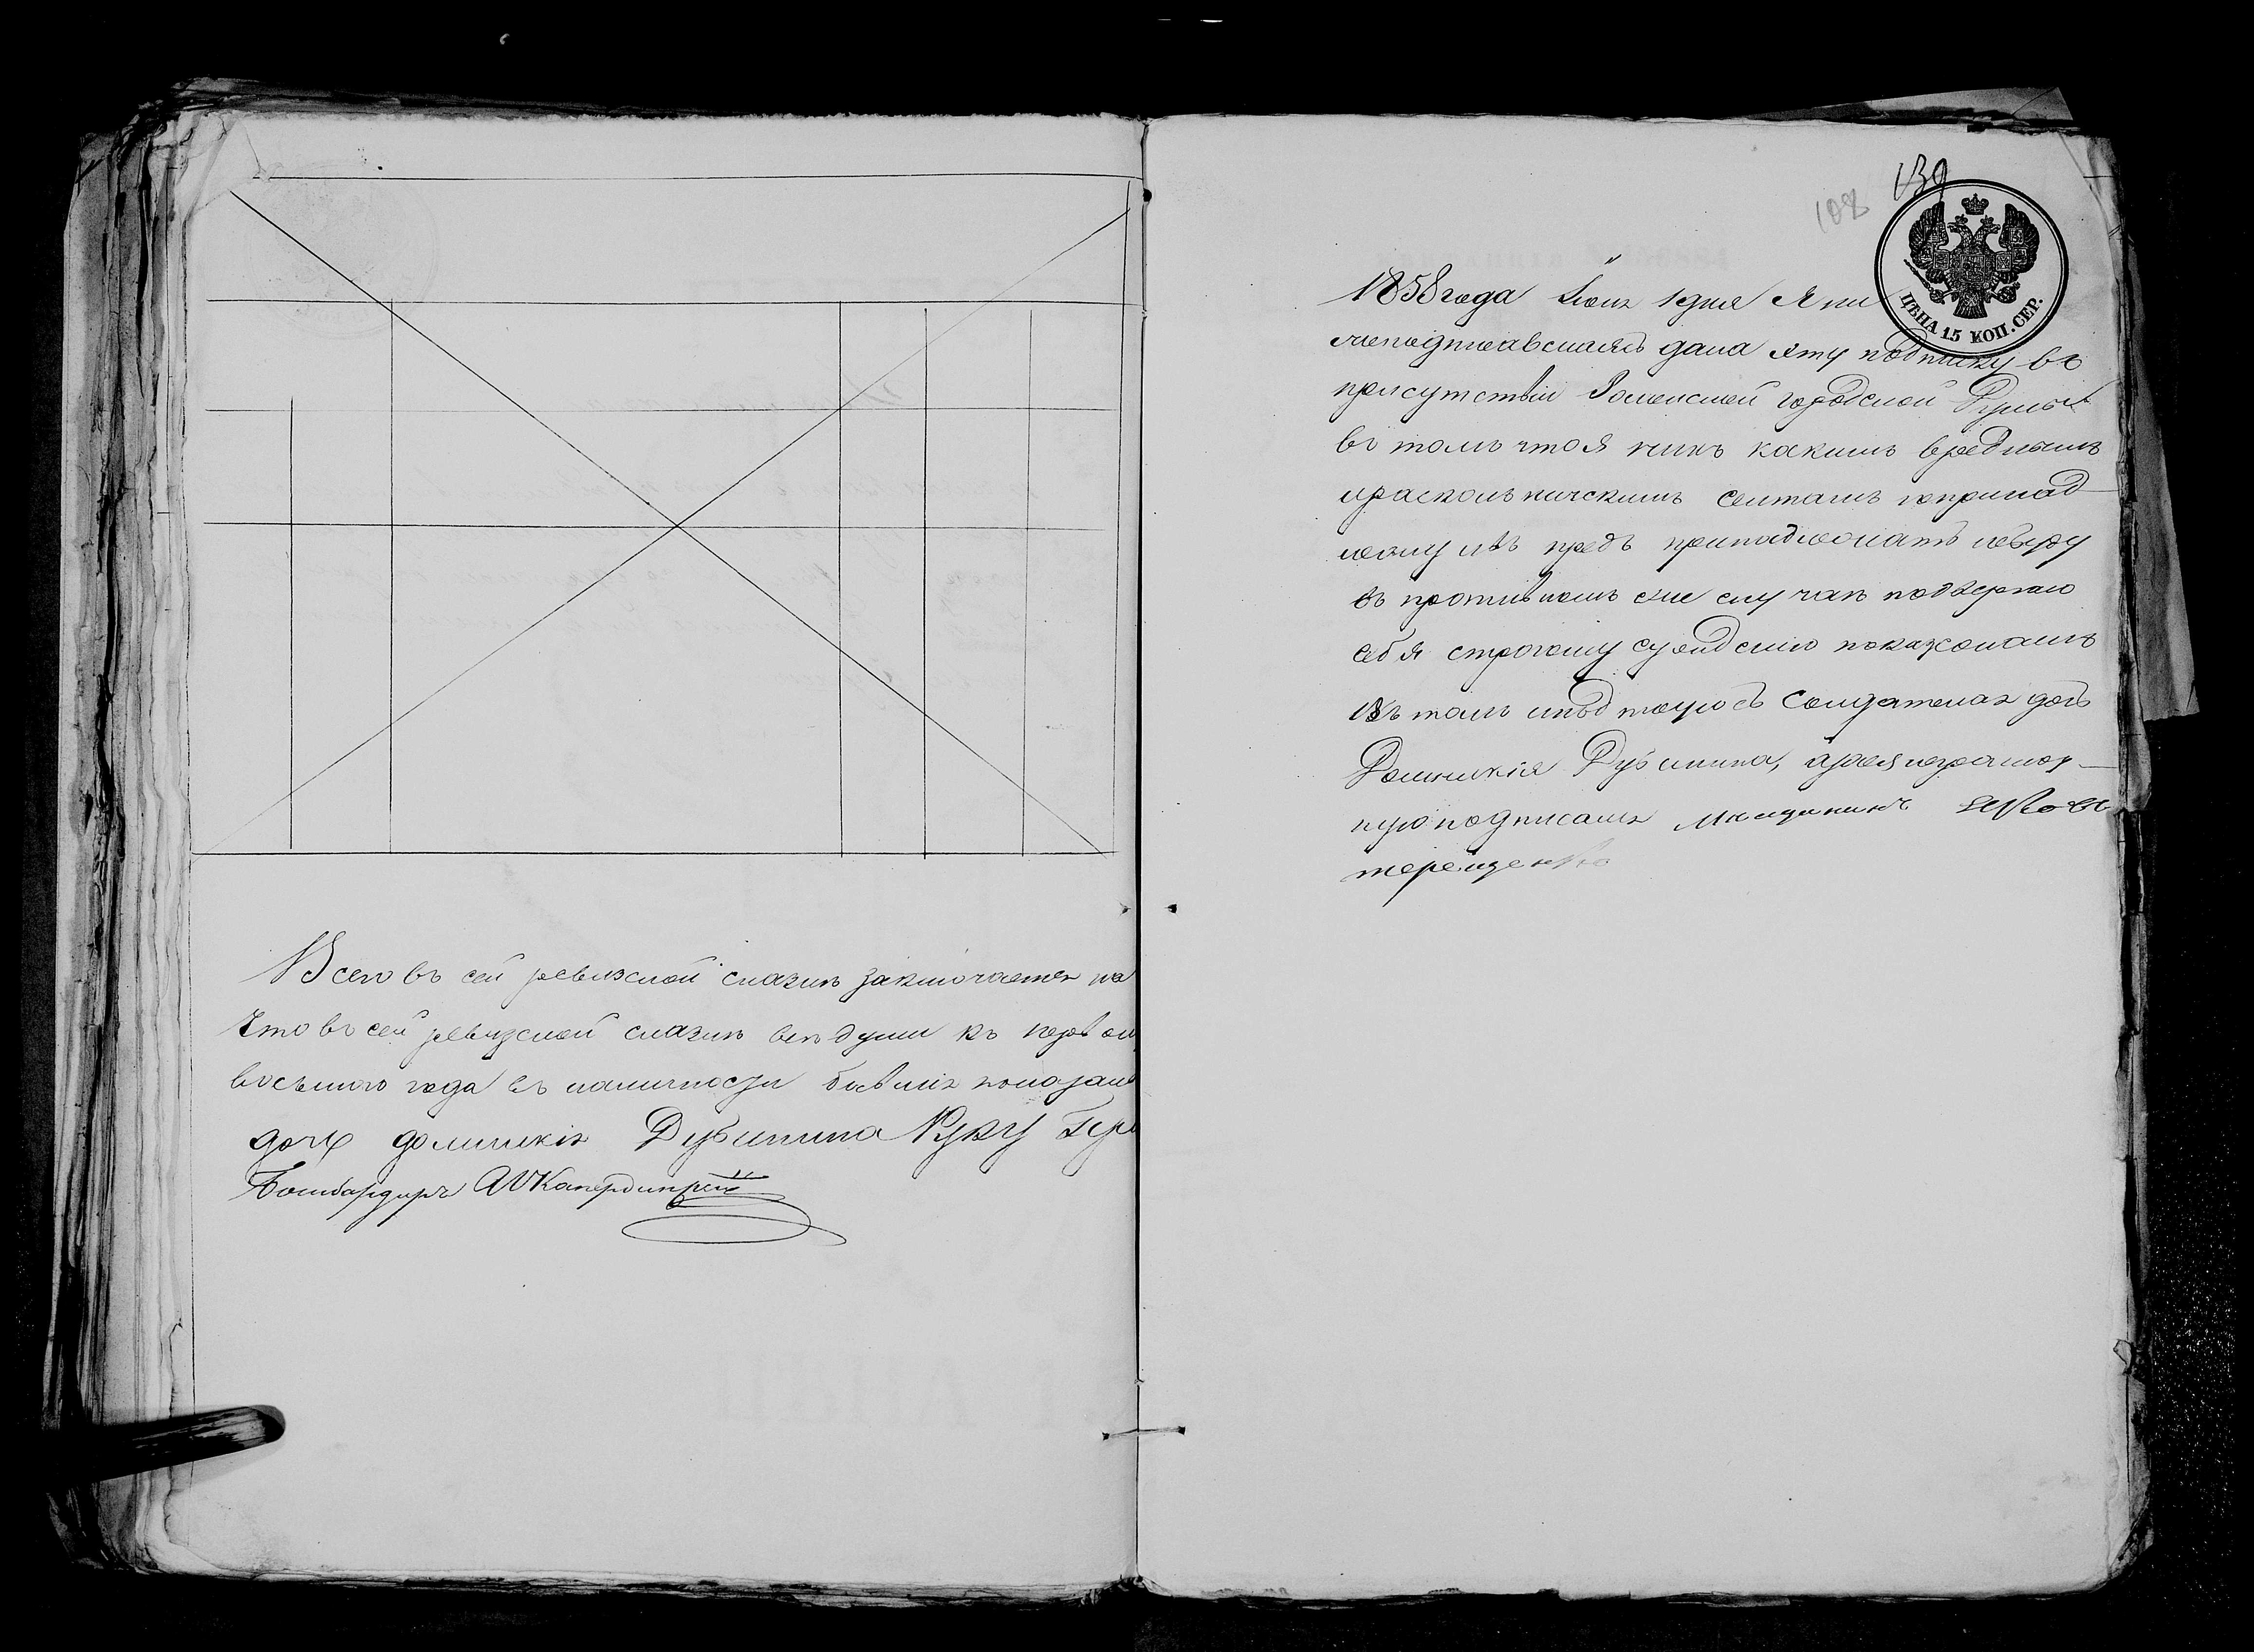 Всего въ сей ревизской сказкѣ заключается на
Что въ сей ревизской сказкѣ всѣ души къ
восьмого года въ наличности бывшіе показан
дочь домникія Дубинина Руку
Бомбардиръ
139
108
ЦѢНА 15 КОП. СЕР.
1858 года 1 дня Я ни
жеподписавшаясь дала эту подписку въ
присутствіи Роменской городской Думы
въ томъ что я никъ какимъ вреднымъ
и раскольническимъ сектамъ
принадлежать небуду
въ противномъ же случаѣ подвергаю
себя строгому сужденію позаконамъ
Въ томъ и подписуюсь Солдатская дочь
Домникія Дубинина, а заея неграмот-
ную подписалъ мѣщанинъ Яковъ
терещенко